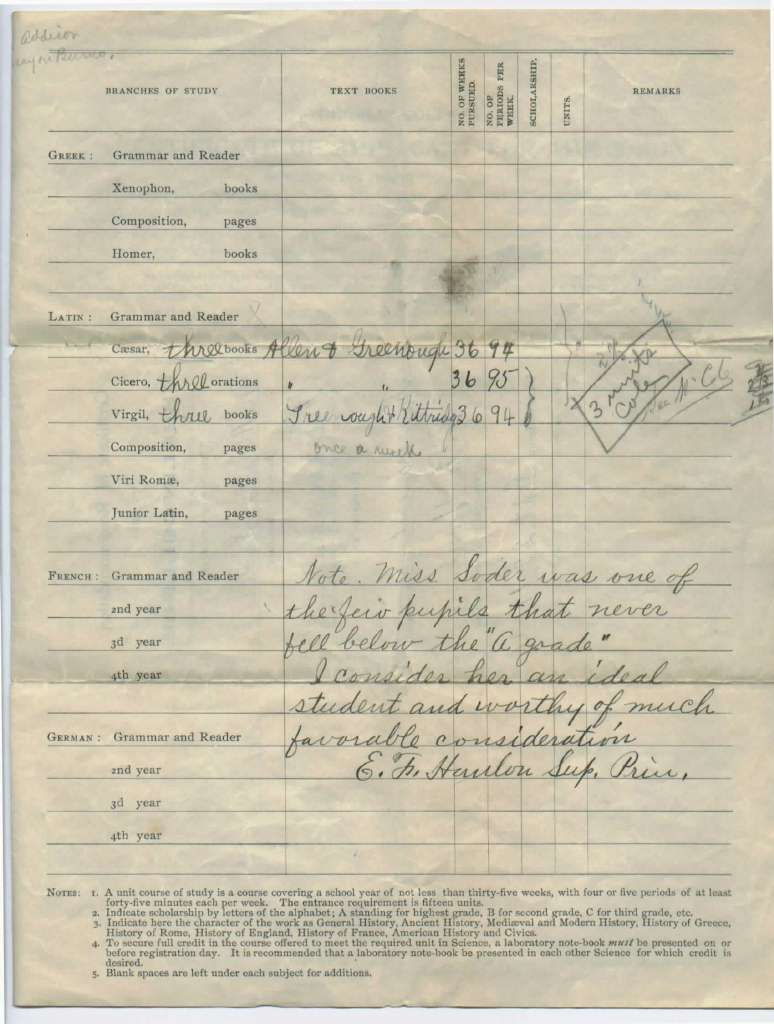 Addison
BRANCHES OF STUDY TEXT BOOKS NO. OF WEEKS PURSUED. NO. OF PERIODS PER WEEK. SCHOLARSHIP. UNITS. REMARKS
GREEK : Grammar and Reader
Xenophon, books
Composition, pages
Homer, books
LATIN : Grammar and Reader
Cæsar, three books Allen & Greenough 36 94
Cicero, three orations " " 36 95
Virgil, three books Greenough & Kittridg 36 94
3 units
Composition, pages once a week
Viri Romæ, pages
Junior Latin, pages
FRENCH : Grammar and Reader Note. Miss Soder was one of
2nd year the few pupils that never
3d year fell below the "A grade"
4th year I consider her an ideal
student and worthy of much
GERMAN : Grammar and Reader favorable consideration
2nd year E. F. Hanlon Sup. Prin.
3d year
4th year
NOTES: 1. A unit course of study is a course covering a school year of not less than thirty-five weeks, with four or five periods of at least
forty-five minutes each per week. The entrance requirement is fifteen units.
2. Indicate scholarship by letters of the alphabet; A standing for highest grade, B for second grade, C for third grade, etc.
3. Indicate here the character of the work as General History, Ancient History, Mediæval and Modern History, History of Greece,
History of Rome, History of England, History of France, American History and Civics.
4. To secure full credit in the course offered to meet the required unit in Science, a laboratory note-book must be presented on or
before registration day. It is recommended that a laboratory note-book be presented in each other Science for which credit is
desired.
5. Blank spaces are left under each subject for additions.